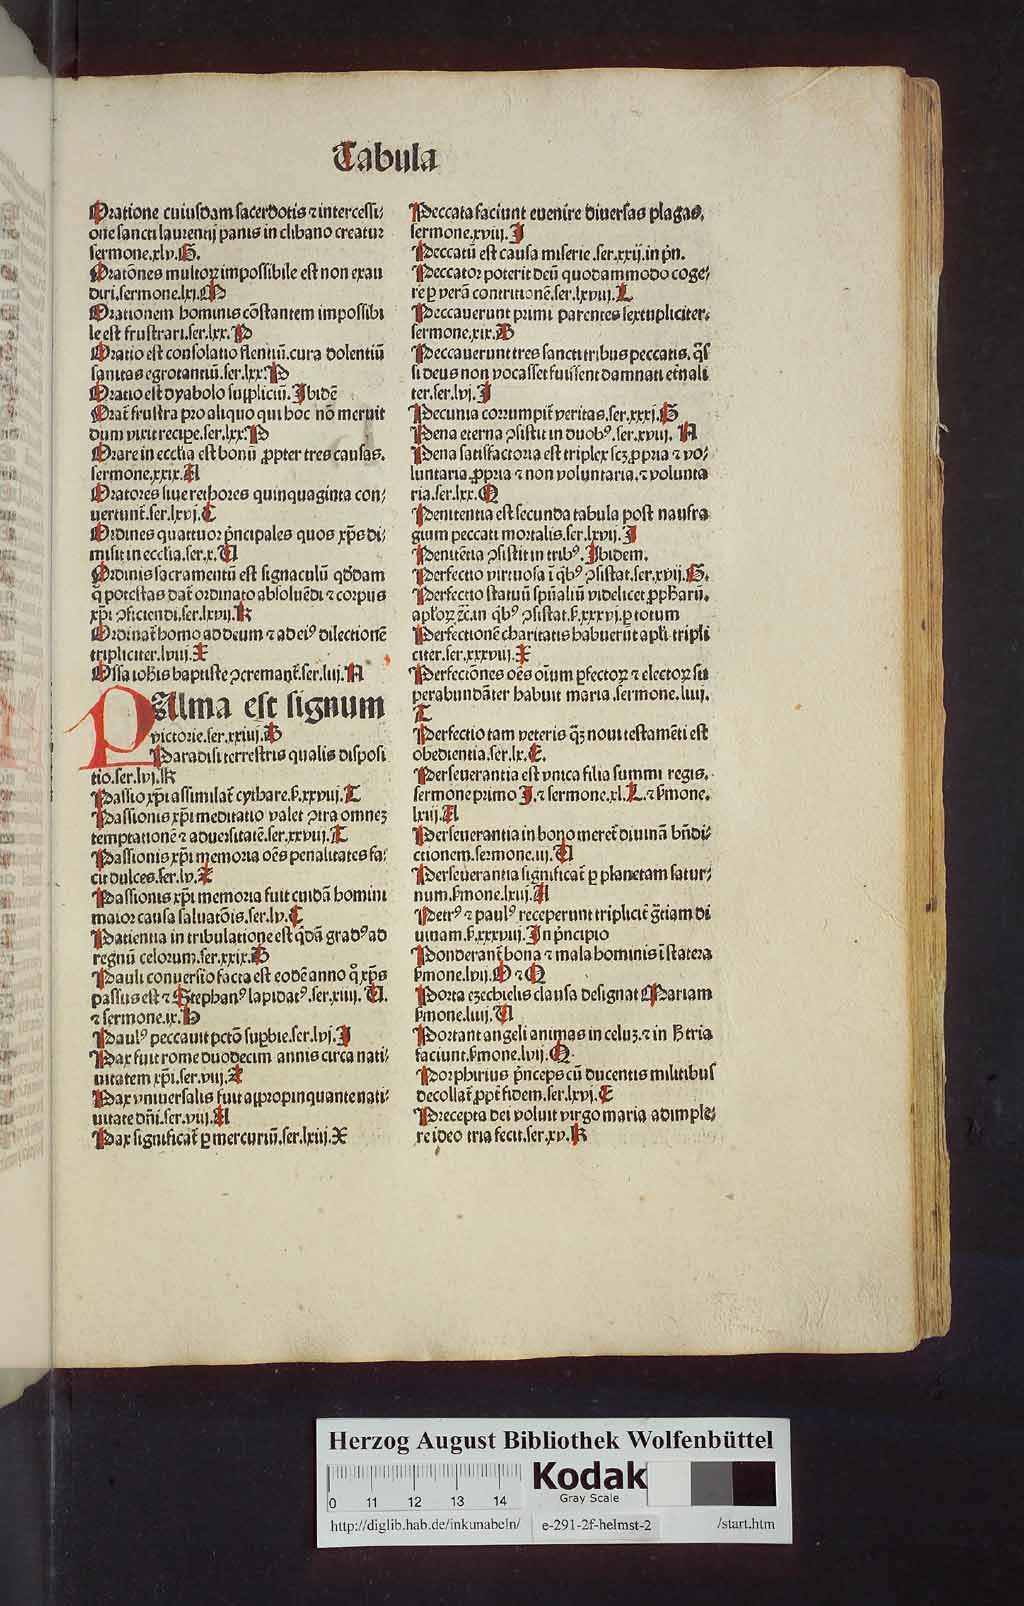 Tabula
Oratione cuiusdam sacerdotis ⁊ intercessi⸗
one sancti laurentij panis in clibano creatur
sermone.xlv.G.
Oratōnes multoꝝ impossibile est non exau
diri.sermone.lxi.M
Orationem hominis cōstantem impossibi
le est frustrari.ser.lxx.P
Oratio est consolatio flentiū.cura dolentiū
sanitas egrotantiū.ser.lxx.P
Oratio est dyabolo suppliciū.Ibidē
Orat̄ frustra pro aliquo qui hoc nō meruit
dum vixit recipe.ser.lxx.P
Orare in ecclīa est bonū ꝓpter tres causas.
sermone.xxix.A
Oratores siue rethores quinquaginta con⸗
uertunt̄.ser.lxvj.C
Ordines quattuor p̄ncipales quos xp̄s di⸗
misit in ecclia.ser.x.U
Ordinis sacramentū est signaculū qd̄dam
q̄ potestas dat̄ ordinato absoluēdi ⁊ corpus
xp̄i ꝯficiendi.ser.lxvij.K
Ordinat̄ homo ad deum ⁊ ad eiꝰ dilectionē
tripliciter.lviij.X
Ossa iohīs baptiste ꝯcremant̄.ser.liij.N
PAlma est signum
victorie.ser.xxiiij.B
Paradisi terrestris qualis disposi
tio.ser.lvj.K
Passio xp̄i assimilat̄ cythare.ẜ.xxviij.T
Passionis xp̄i meditatio valet ꝯtra omnez
temptationē ⁊ aduersitatē.ser.xxviij.T
Passionis xp̄i memoria oēs penalitates fa⸗
cit dulces.ser.lv.X
Passionis xp̄i memoria fuit cuidā homini
maior causa saluatōis.ser.lv.C
Patientia in tribulatione est qd̄ā gradꝰ ad
regnū celorum.ser.xxix.B
Pauli conuersio facta est eodē anno q̊ xp̄s
passus est ⁊ Stephanꝰ lapidatꝰ.ser.xiiij.U.
⁊ sermone.ix.D
Paulꝰ peccauit pctō supbie.ser.lvj.I
Pax fuit rome duodecim annis circa nati⸗
uitatem xp̄i.ser.viij.Z
Pax vniuersalis fuit appropinquante nati⸗
uitate dn̄i.ser.viij.A
Pax significat̄ ꝑ mercuriū.ser.lxiij.X
Peccata faciunt euenire diuersas plagas.
sermone.xviij.I
Peccatū est causa miserie.ser.xxij.in pn̄.
Peccatoꝛ poterit deū quodammodo coge⸗
re ꝑ verā contritionē.ser.lxviij.L
Peccauerunt primi parentes sextupliciter.
sermone.xix.B
Peccauerunt tres sancti tribus peccatis.q̄s
si deus non vocasset fuissent damnati et̄nali
ter.ser.lvj.I
Pecunia corrumpit̄ veritas.ser.xxxj.G
Pena eterna ꝯsistit in duobꝰ.ser.xvij.N
Pena satisfactoria est triplex scꝫ ꝓpria ⁊ vo⸗
luntaria.ꝓpria ⁊ non voluntaria.⁊ volunta
ria.ser.lxx.Q
Penitentia est secunda tabula post naufra
gium peccati mortalis.ser.lxvij.I
Penitētia ꝯsistit in tribꝰ.Ibidem.
Perfectio virtuosa ī q̄bꝰ ꝯsistat.ser.xvij.G.
Perfectio statuū spūaliū videlicet ꝓpharū.
apl̄oꝝ ⁊c̄.in q̄bꝰ ꝯsistat.ẜ.xxxvj.ꝑ totum
Perfectionē charitatis habuerūt apl̄i tripli
citer.ser.xxxviij.X
Perfeciōnes oēs oīum ꝑfectoꝝ ⁊ electoꝝ su
perabundāter habuit maria.sermone.liiij.
T
Perfectio tam veteris qꝫ noui testamēti est
obedientia.ser.lx.E.
Perseuerantia est vnica filia summi regis.
sermone primo I.⁊ sermone.xl.L.⁊ ẜmone.
lxiij.A
Perseuerantia in bono meret̄ diuinā bn̄di⸗
ctionem.sermone.iij.U
Perseuerantia significat̄ ꝑ planetam satur⸗
num.ẜmone.lxiij.A
Petrꝰ ⁊ paulꝰ receperunt triplicē gr̄tiam di
uinam.ẜ.xxxviij.In p̄ncipio
Ponderant̄ bona ⁊ mala hominis ī statera
ẜmone.lvij.O ⁊ Q
Porta ezechielis clausa designat Mariam
ẜmone.liiij.U
Portant angeli animas in celuꝫ.⁊ in ꝑtria
faciunt.ẜmone.lvij.Q.
Porphirius p̄nceps cū ducentis militibus
decollat̄ ꝓpt̄ fidem.ser.lxvj.E
Precepta dei voluit virgo maria adimple⸗
re ideo tria fecit.ser.xv.K
Herzog August Bibliothek Wolfenbüttel
0 11 12 13 14
Kodak
Gray Scale
http://diglib.hab.de/inkunabeln/ e-291-2f-helmst-2 /start.htm